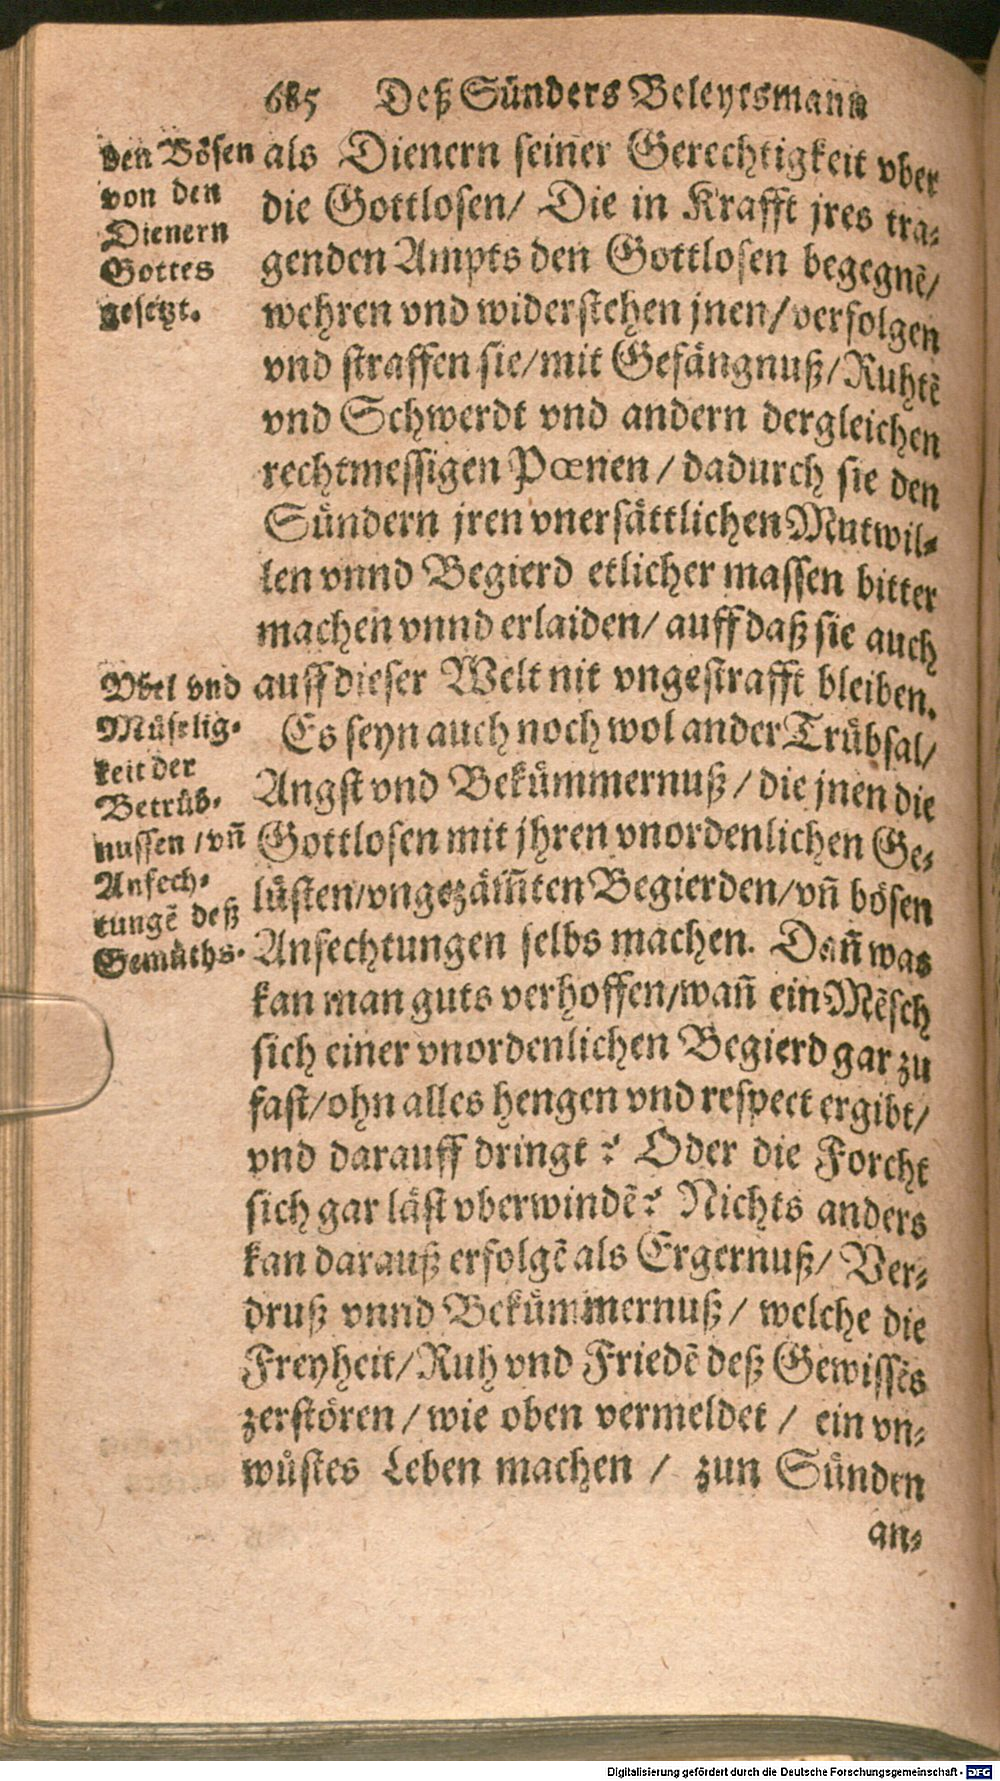 685 Deß Sünders Beleytsmann
den Bösen
von den
Dienern
Gottes
gesetzt.
als Dienern seiner Gerechtigkeit vber
die Gottlosen/ Die in Krafft jres tra-
genden Ampts den Gottlosen begegnẽ/
wehren vnd widerstehen jnen/ verfolgen
vnd straffen sie/ mit Gefängnuß/ Ruhtẽ
vnd Schwerdt vnd andern dergleichen
rechtmessigen Pœnen/ dadurch sie den
Sündern jren vnersättlichen Mutwil-
len vnnd Begierd etlicher massen bitter
machen vnnd erlaiden/ auff daß sie auch
auff dieser Welt nit vngestrafft bleiben.
Vbel vnd
Müselig-
keit der
Betrüb-
nussen/ vñ
Anfech-
tungẽ deß
Gemüths.
Es seyn auch noch wol ander Trübsal/
Angst vnd Bekümmernuß/ die jnen die
Gottlosen mit jhren vnordenlichen Ge-
lüsten/ vngezäm̃ten Begierden/ vñ bösen
Anfechtungen selbs machen. Dañ was
kan man guts verhoffen/ wañ ein Mẽsch
sich einer vnordenlichen Begierd gar zu
fast/ ohn alles hengen vnd respect ergibt/
vnd darauff dringt? Oder die Forcht
sich gar läst vberwindẽ? Nichts anders
kan darauß erfolgẽ als Ergernuß/ Ver-
druß vnnd Bekümmernuß/ welche die
Freyheit/ Ruh vnd Friedẽ deß Gewissẽs
zerstören/ wie oben vermeldet/ ein vn-
wüstes Leben machen/ zun Sünden
an-
Digitalisierung gefördert durch die Deutsche Forschungsgemeinschaft - DFG